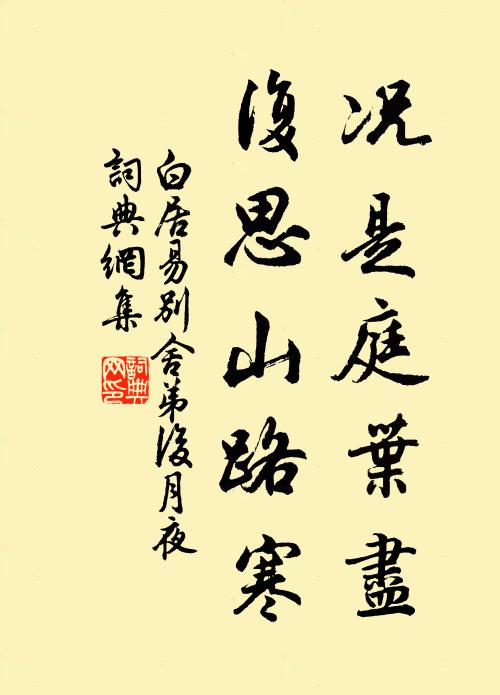 况是庭葉盡
復思山路寒
白居易別舍弟後月夜
詞典網集
詞典網印